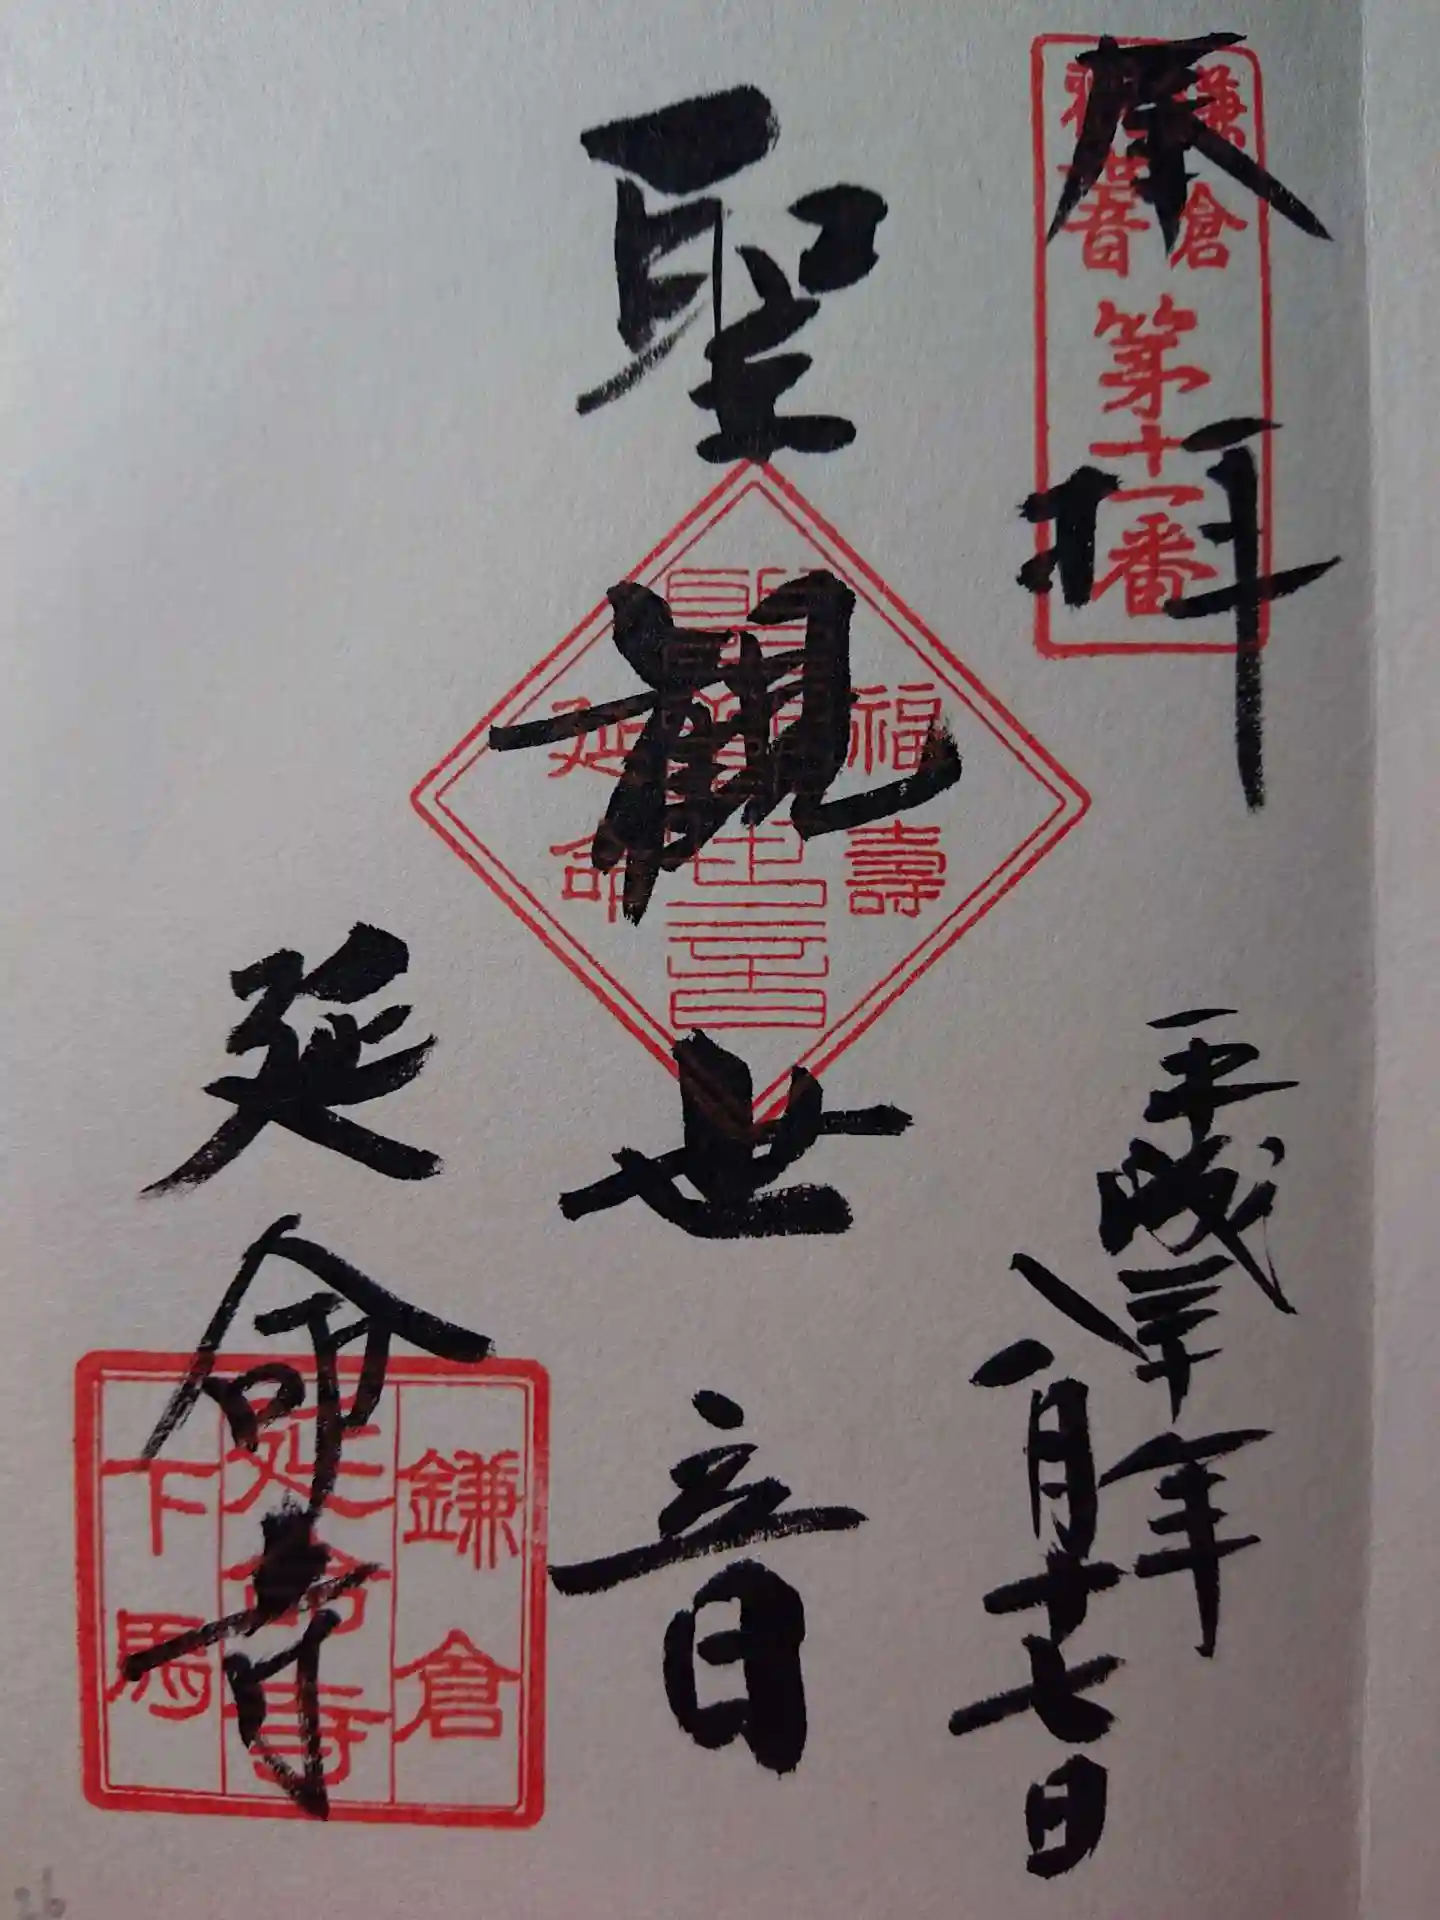 奉拝
鎌倉
観世音
第十一番
平成三十年
八月十七日
聖観世音
福壽
聖観世音
延命
延命寺
鎌倉
延命寺
下馬
26